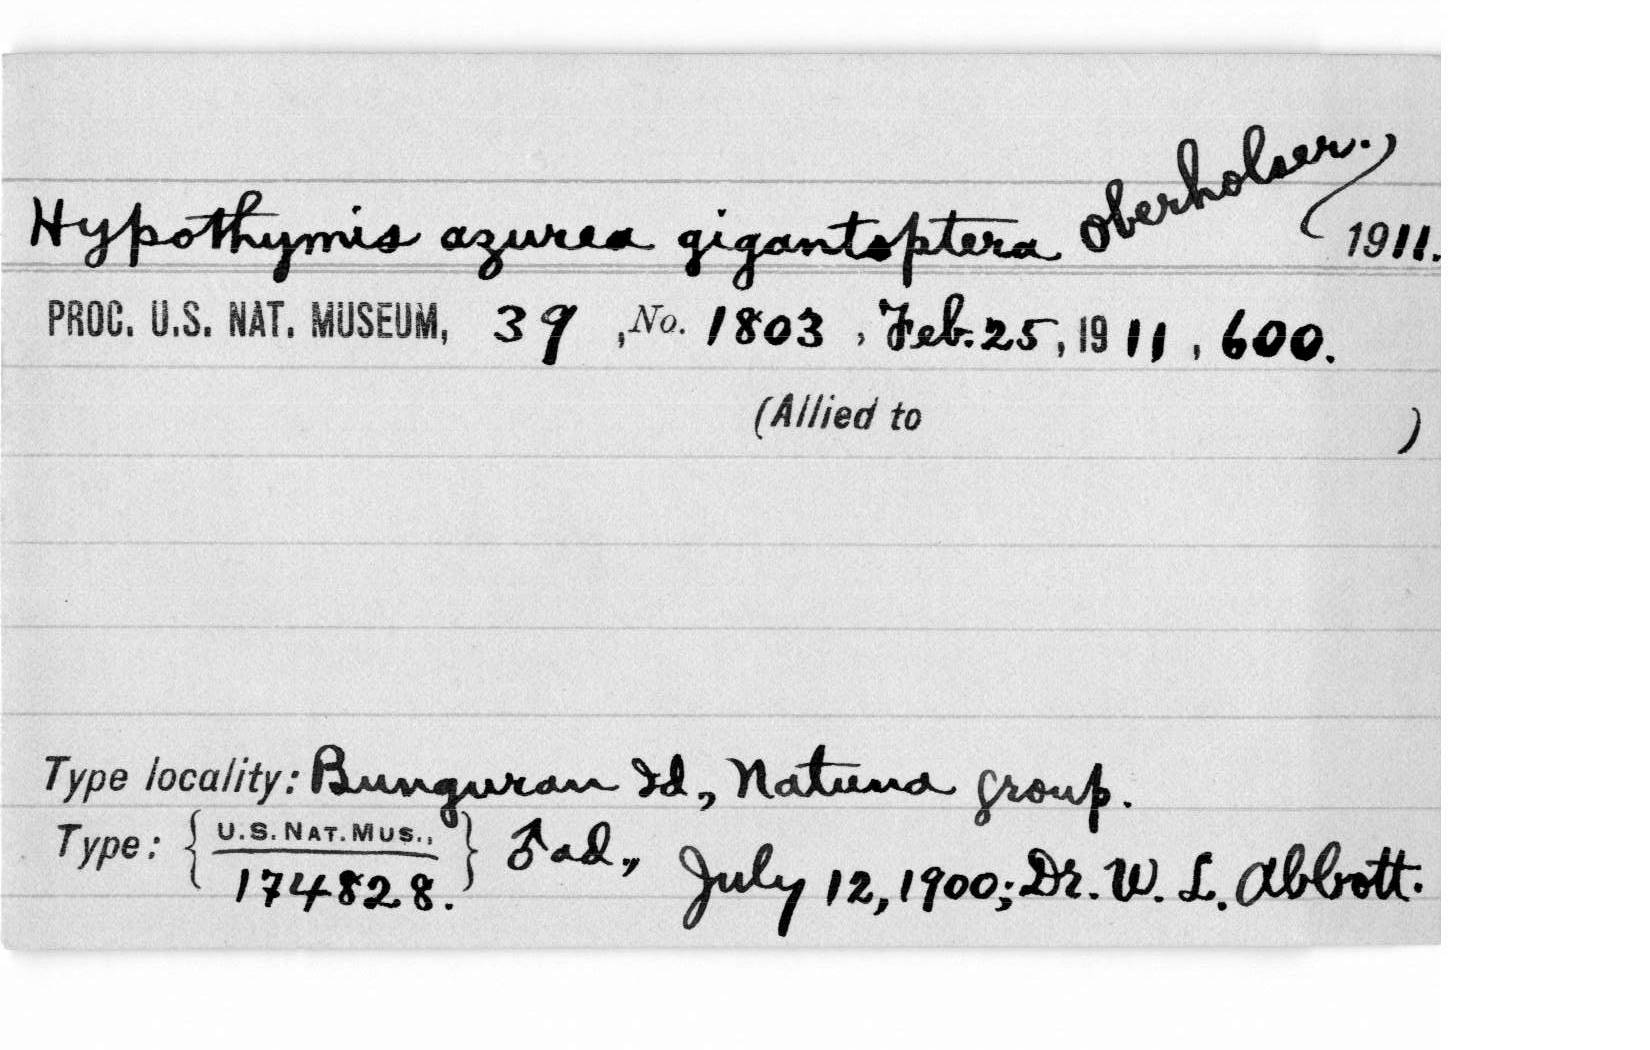 Hypothymis azurea gigantoptera Oberholser.,
1911.
PROC. U.S. NAT. MUSEUM, 39, No. 1803, Feb. 25, 1911, 600.
(Allied to )
Type locality: Bunguran Id., Natuna group.
Type: { U.S. NAT. MUS., 174828. } ♂ ad., July 12, 1900; Dr. W. L. Abbott.